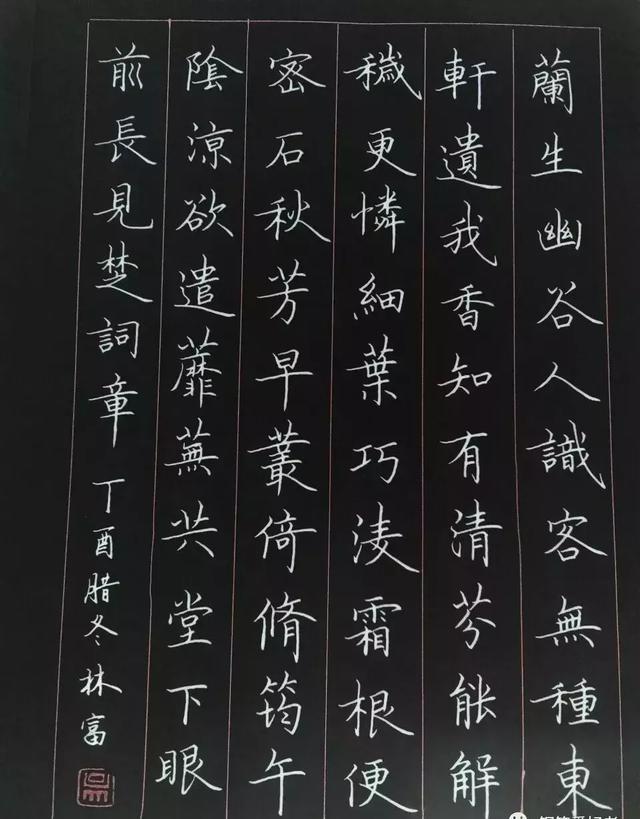 蘭生幽谷人識客無種東
軒遺我香知有清芬能解
穢更憐細葉巧淩霜根便
密石秋芳早叢倚脩筠午
陰涼欲遣蘼蕪共堂下眼
前長見楚詞章 丁酉腊冬林富